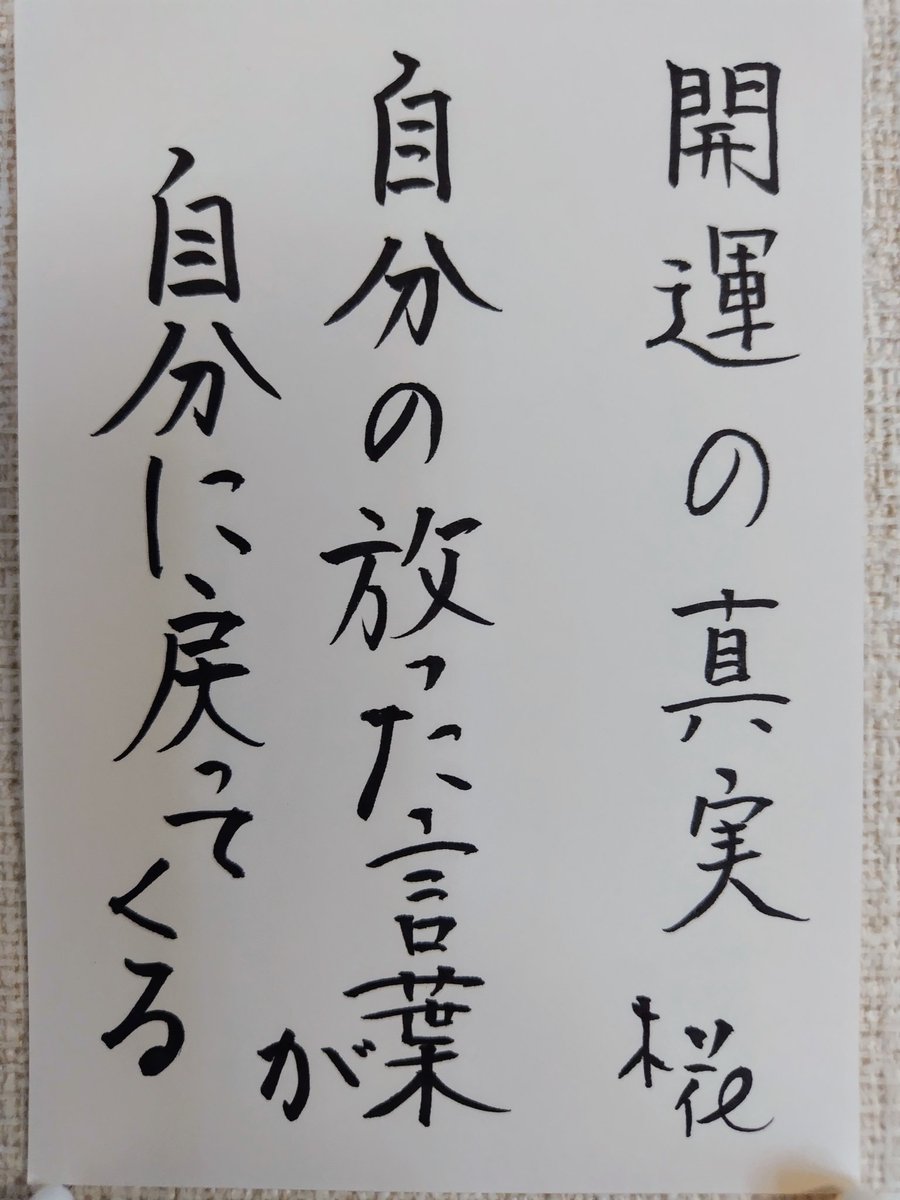 開運の真実
自分の放った言葉が
自分に戻ってくる